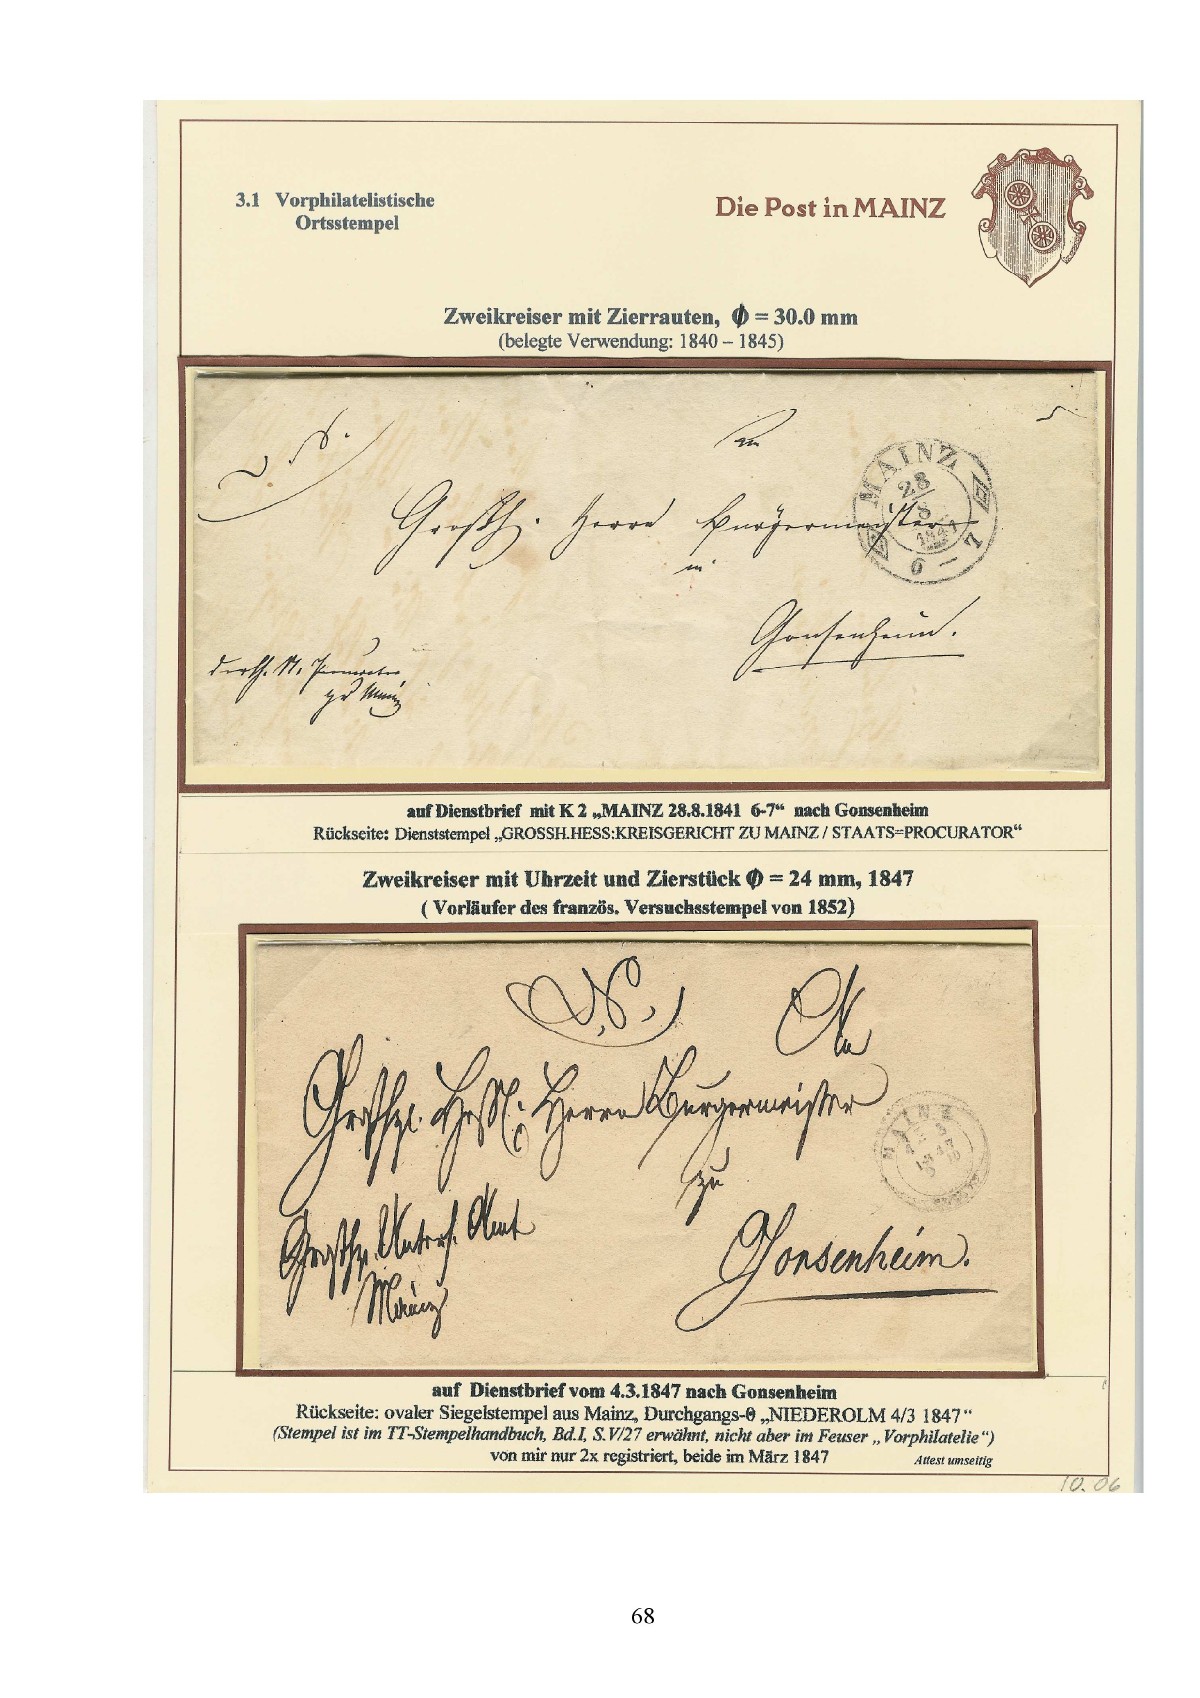 3.1 Vorphilatelistische
Ortsstempel
Die Post in MAINZ
Zweikreiser mit Zierrauten, Ø = 30.0 mm
(belegte Verwendung: 1840 – 1845)
An
MAINZ
28
8
1841
6 – 7
Großh. Herrn Bürgermeister
in
Gonsenheim.
zu Mainz
auf Dienstbrief mit K 2 „MAINZ 28.8.1841 6-7“ nach Gonsenheim
Rückseite: Dienststempel „GROSSH.HESS:KREISGERICHT ZU MAINZ / STAATS=PROCURATOR“
Zweikreiser mit Uhrzeit und Zierstück Ø = 24 mm, 1847
( Vorläufer des französ. Versuchsstempel von 1852)
An
Großhzl. Hessl. Herrn Bürgermeister
MAINZ
zu
Amt
Gonsenheim.
Mainz
auf Dienstbrief vom 4.3.1847 nach Gonsenheim
Rückseite: ovaler Siegelstempel aus Mainz, Durchgangs-θ „NIEDEROLM 4/3 1847“
(Stempel ist im TT-Stempelhandbuch, Bd.I, S. V/27 erwähnt, nicht aber im Feuser „Vorphilatelie“)
von mir nur 2x registriert, beide im März 1847
Attest umseitig
10.06
68